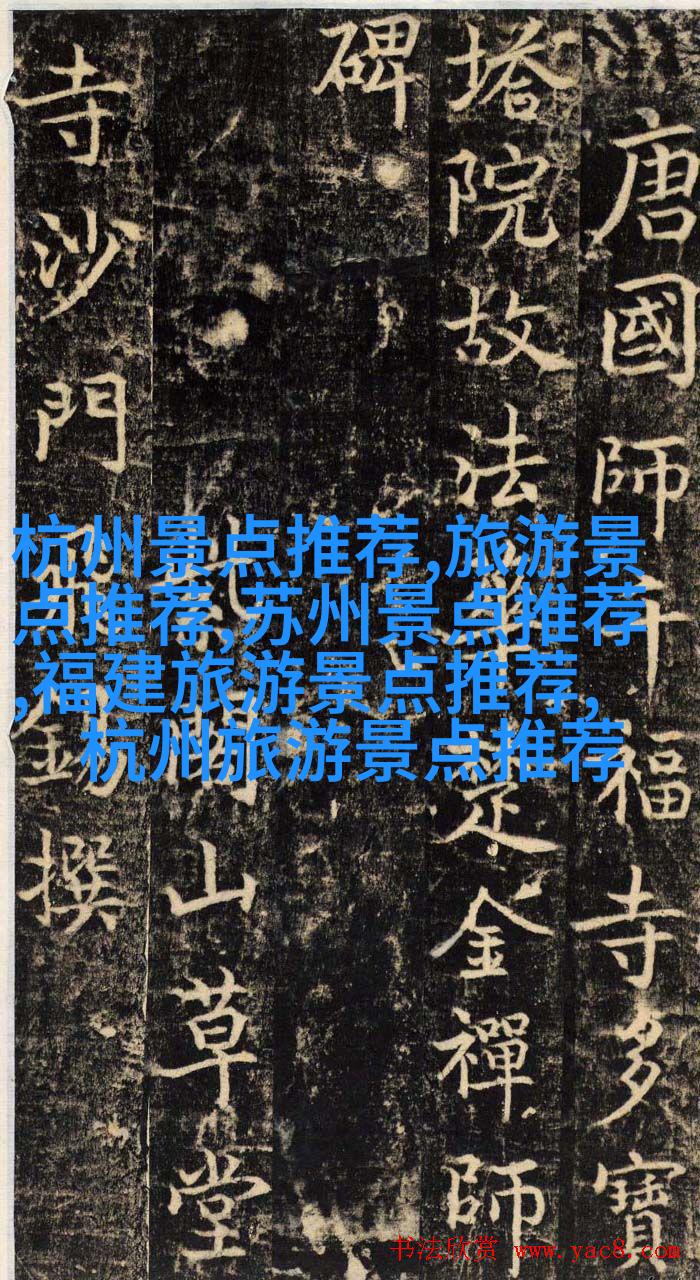 唐國師千福寺多寶
塔院故法華楚金禪師
碑
紫閣山草堂
寺沙門飛錫撰
杭州景点推荐,旅游景
点推荐,苏州景点推荐
,福建旅游景点推荐,
杭州旅游景点推荐
书法欣赏 www.yac8.com